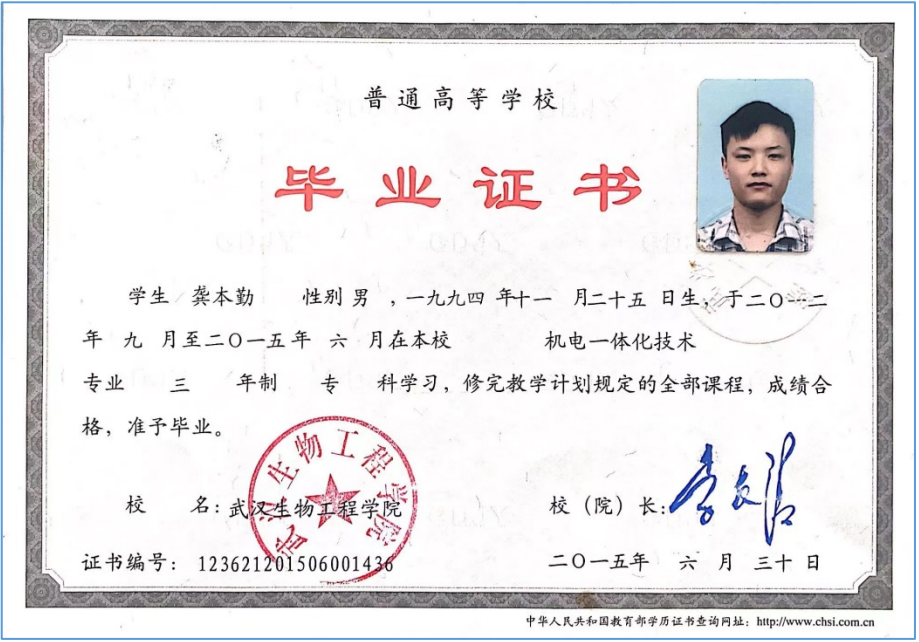 普通高等学校
毕业证书
学生 龚本勤 性别 男 ，一九九四 年十一 月二十五 日生，于二〇一二
年 九 月至二〇一五年 六 月在本校 机电一体化技术
专业 三 年制 专 科学习，修完教学计划规定的全部课程，成绩合
格，准予毕业。
武汉生物工程学院
校 名：武汉生物工程学院 校（院）长：
证书编号： 123621201506001436 二〇一五年 六 月 三十 日
中华人民共和国教育部学历证书查询网址：http://www.chsi.com.cn